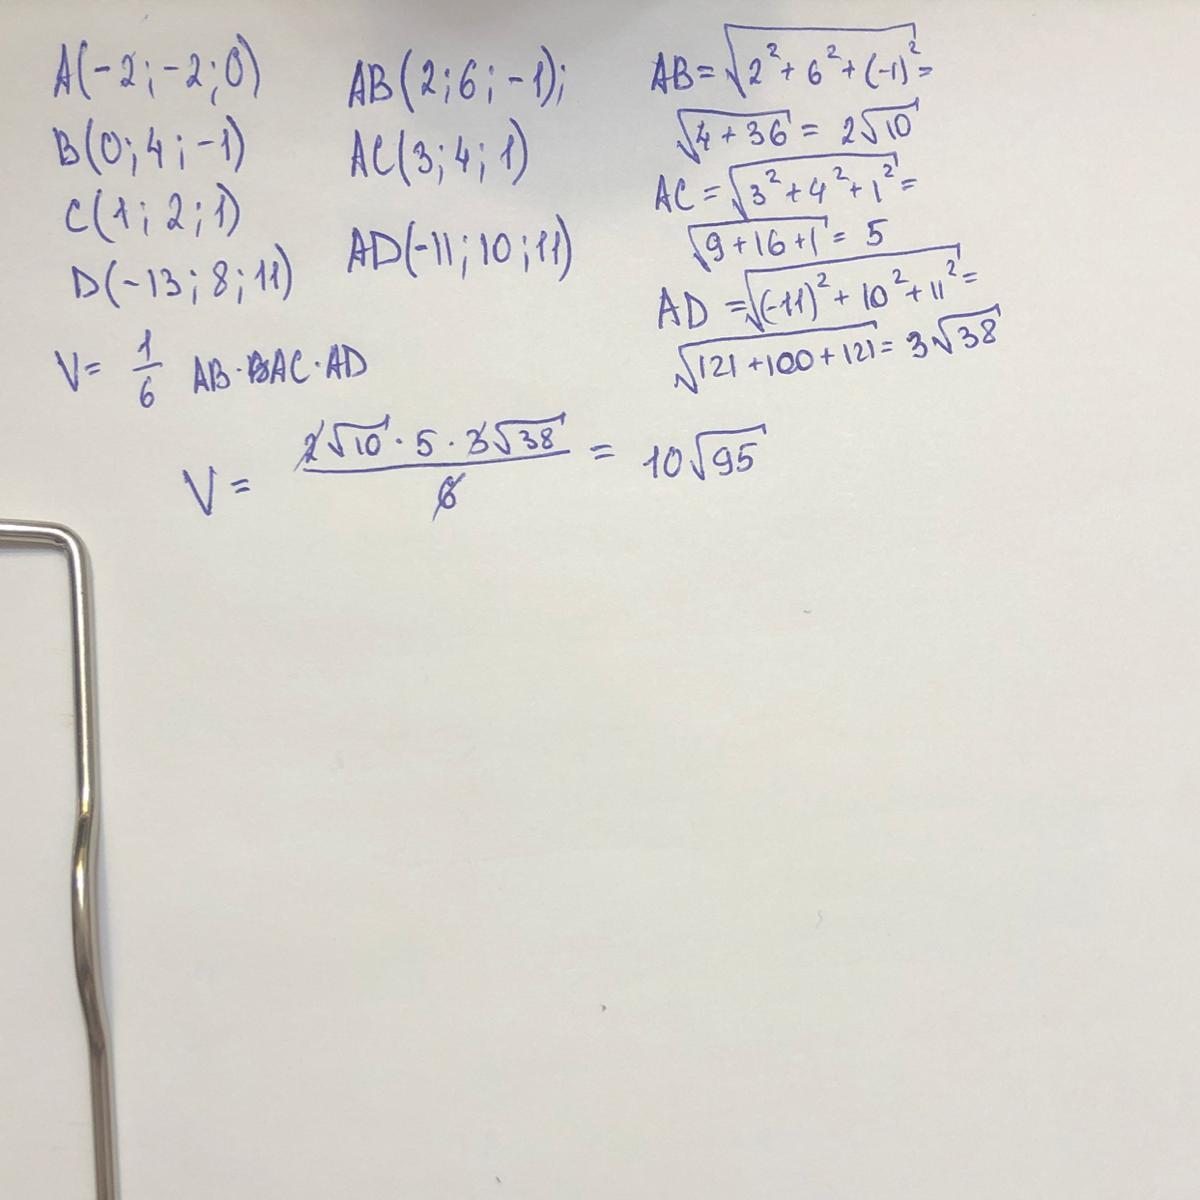 A(-2;-2;0)
B(0;4;-1)
C(1;2;1)
D(-13;8;11)
AB(2;6;-1);
AC(3;4;1)
AD(-11;10;11)
AB=√2²+6²+(-1)²=
√4+36=2√10
AC=√3²+4²+1²=
√9+16+1=5
AD=√(-11)²+10²+11²=
√121+100+121=3√38
V=1/6 AB·AC·AD
V=2√10·5·3√38/6=10√95